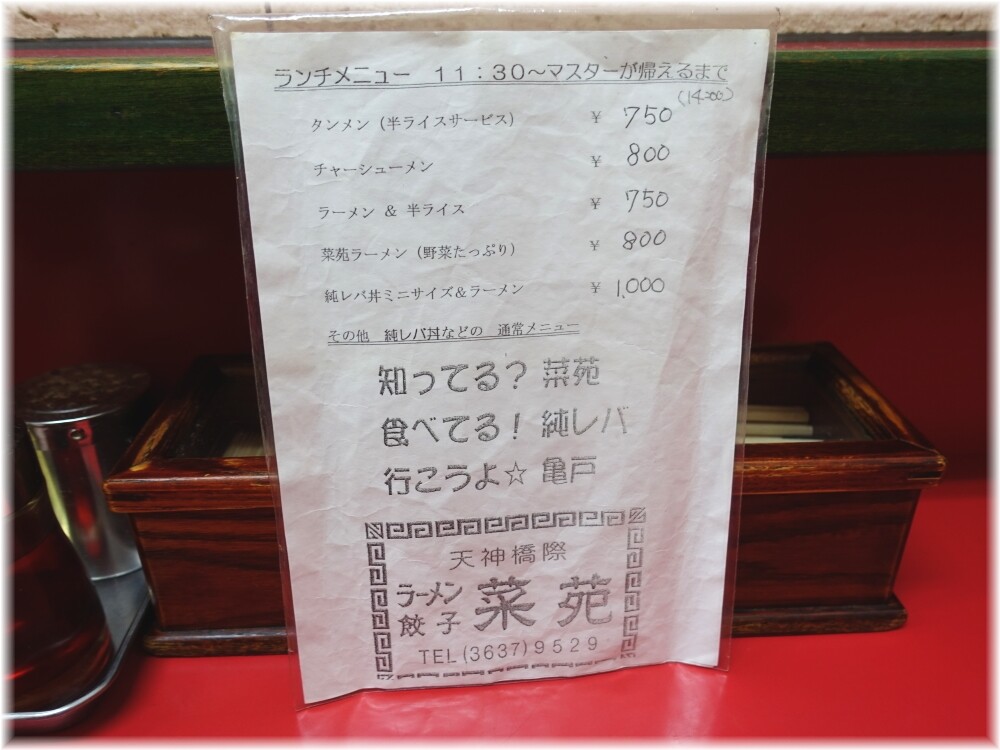 ランチメニュー　１１：３０～マスターが帰えるまで
(14:00)
タンメン（半ライスサービス）　￥ 750
チャーシューメン　￥ 800
ラーメン ＆ 半ライス　￥ 750
菜苑ラーメン（野菜たっぷり）　￥ 800
純レバ丼ミニサイズ＆ラーメン　￥ 1,000
その他　純レバ丼などの　通常メニュー
知ってる？ 菜苑
食べてる！ 純レバ
行こうよ☆ 亀戸
天神橋際
ラーメン
餃子 菜苑
TEL(3637)9529